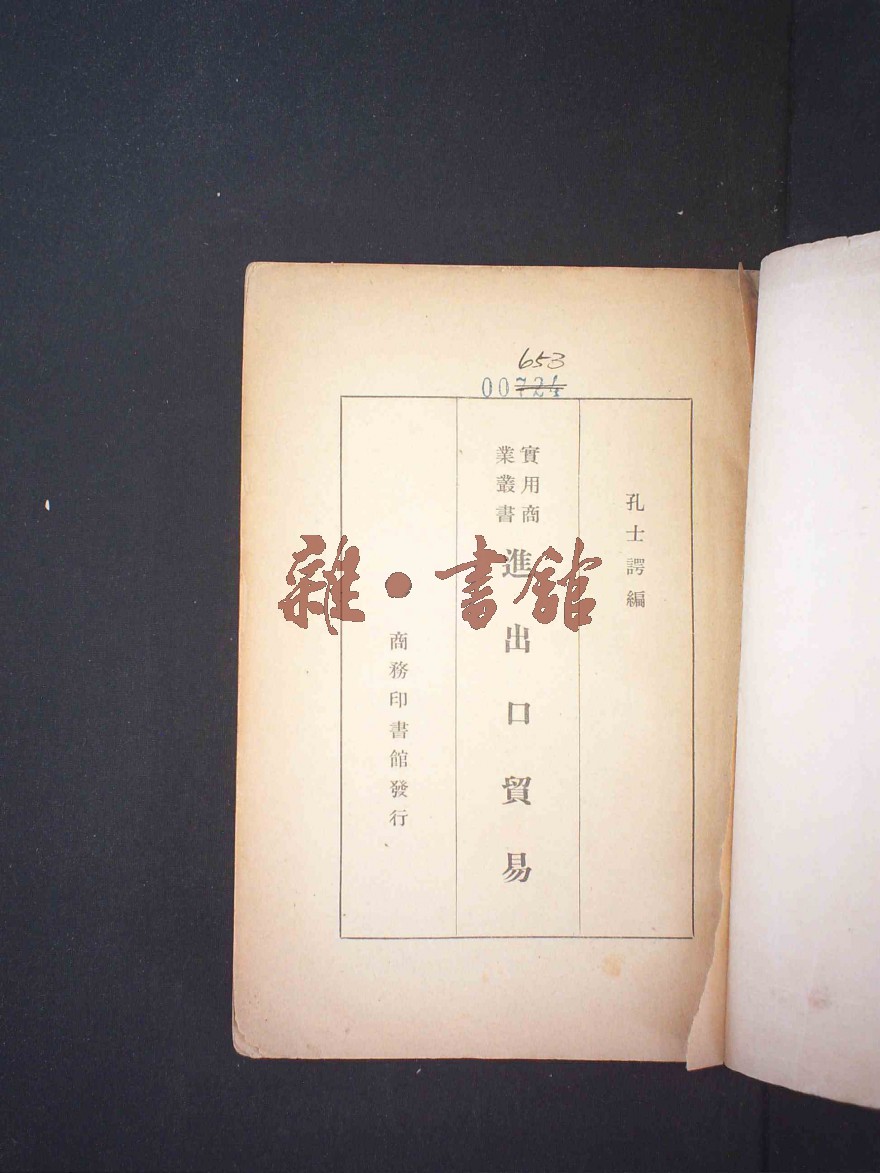 653
00724
孔士諤編
實用商
業叢書
進出口貿易
商務印書館發行
雜·書館